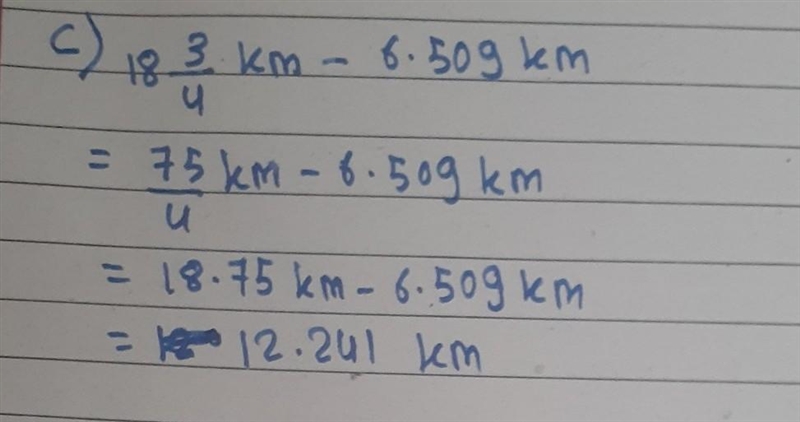 c) 18 3/4 km - 6.509 km
= 75/4 km - 6.509 km
= 18.75 km - 6.509 km
= 12.241 km